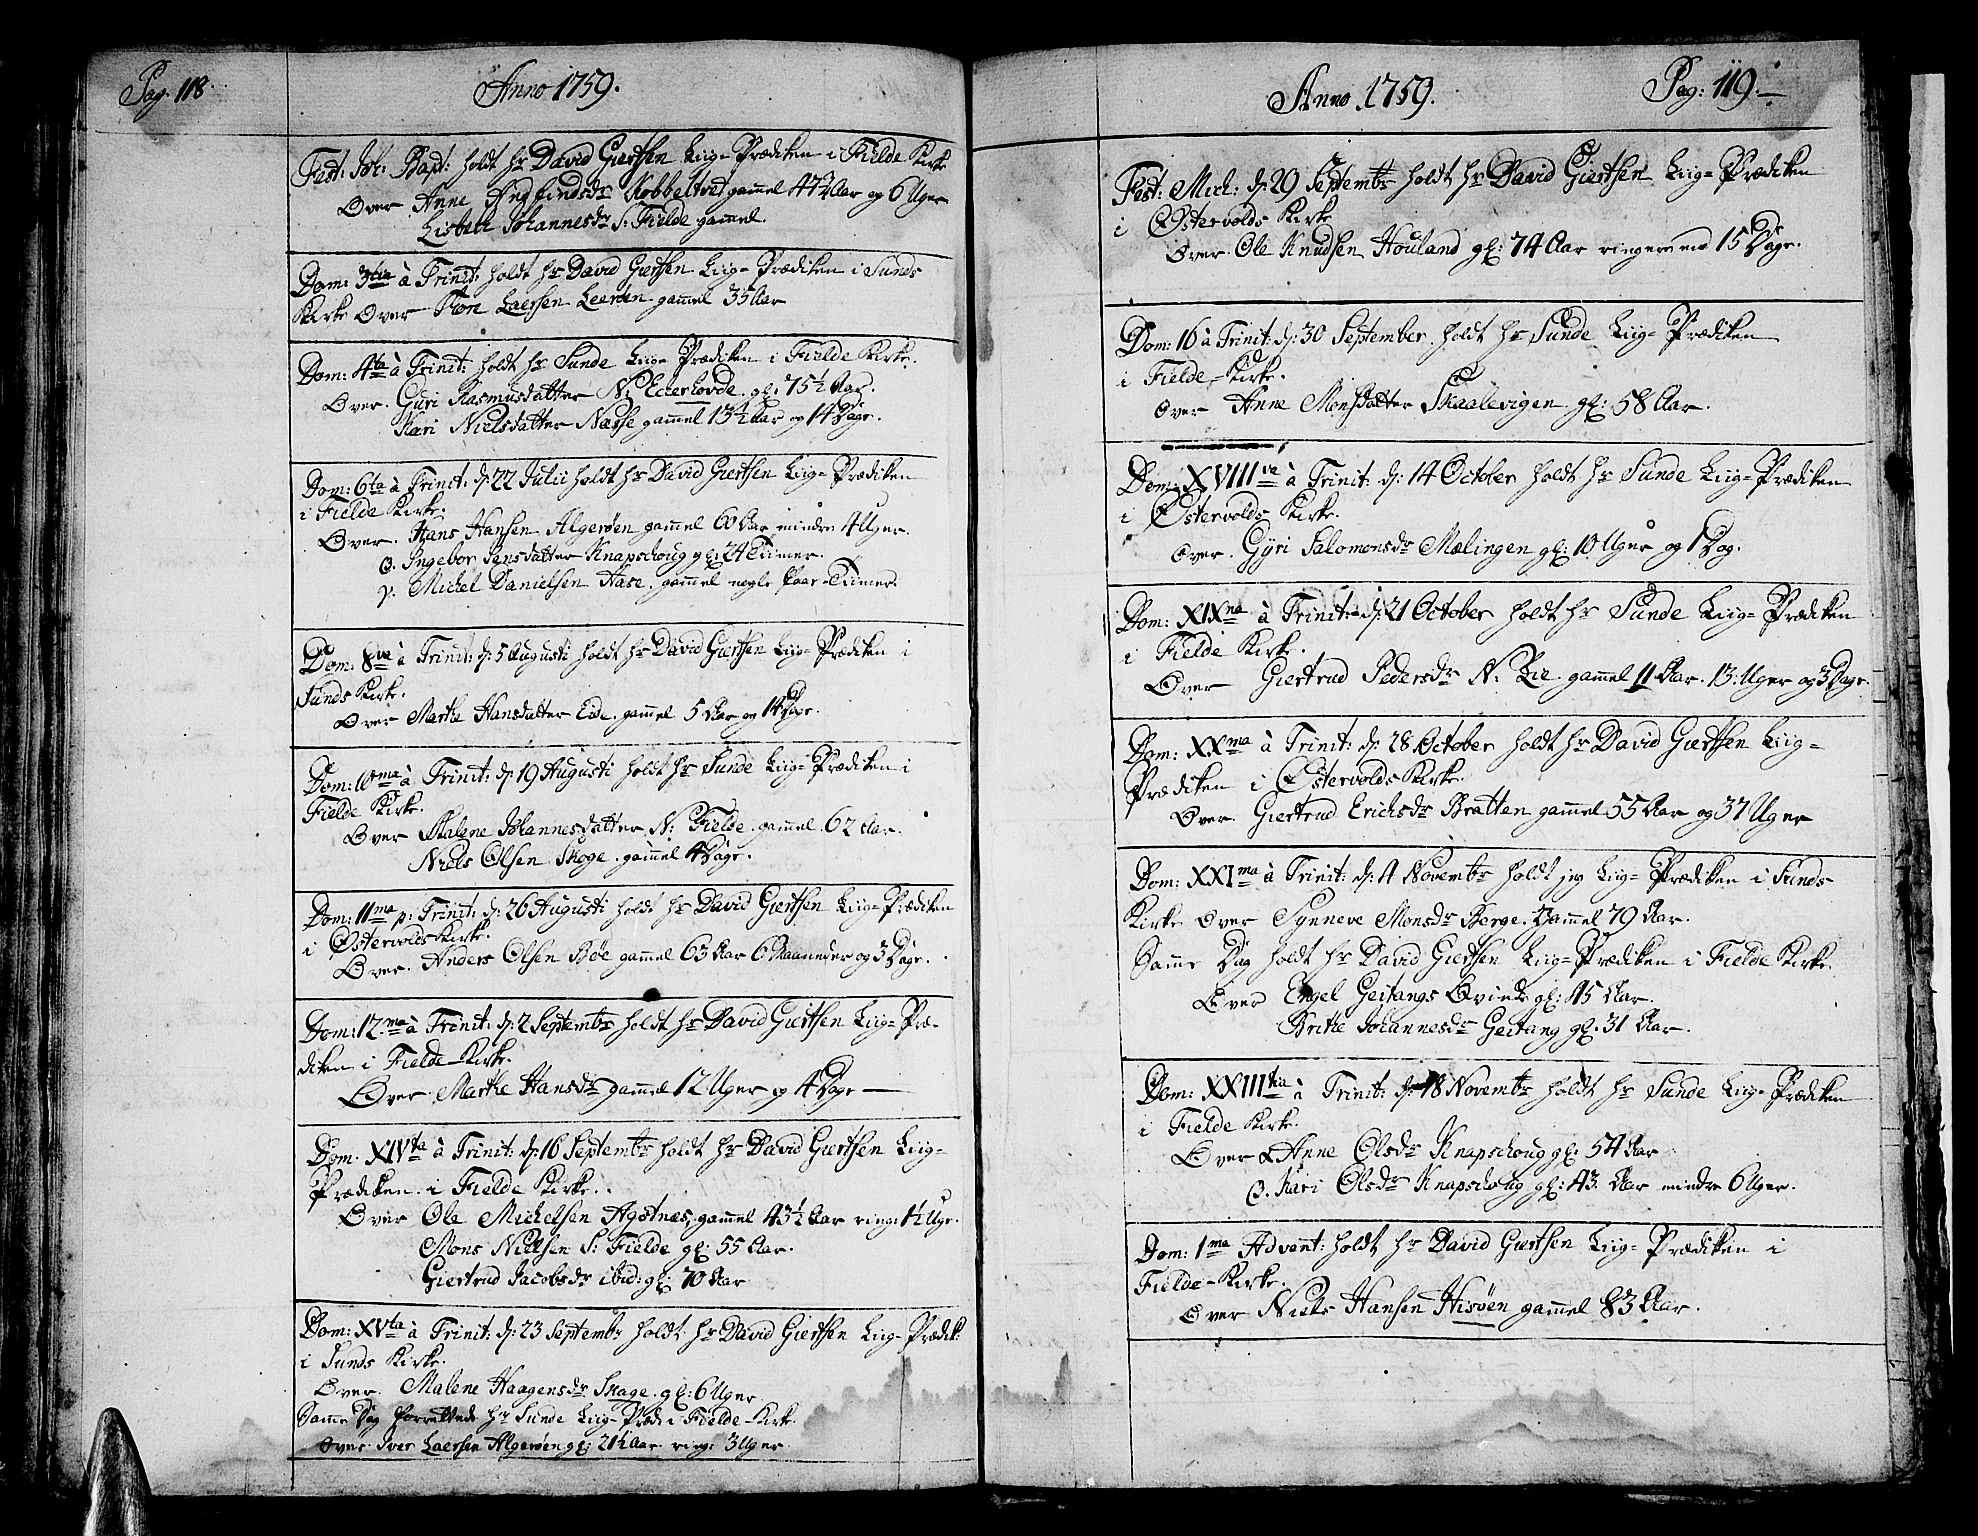 Pag. 118.
Anno 1759.
Fest: Joh: Bapt: holdt hr David Giertsen Liig=Prædiken i Fielde Kirke
Over Anne Andfindsdr Kobbeltvet gammel 47½ Aar og 6 Uger
Lisbeth Johannesdr S: Fielde gammel.
Dom: 3tia à Trinit: holdt hr David Giertsen Liig=Prædiken i Sunds
Kirke Over Laersen Leerøen gammel 35 Aar
Dom: 4ta à Trinit: holdt hr Sunde Liig=Prædiken i Fielde Kirke.
Over. Guri Rasmusdatter N: Eckerhovde. gl: 75½ Aar.
Kari Nielsdatter Næsse gammel 13½ Aar og 14 Dage.
Dom: 6ta à Trinit: d: 22 Julii holdt hr David Giertsen Liig=Prædiken
i Fielde Kirke.
Over. Hans Hansen Algerøen gammel 60 Aar mindre 4 Uger.
Ingebor Jensdatter Knapschoug gl: 24 Tiimer.
Michel Danielsen Aase. gammel nogle Paar Tiimer.
Dom: 8va à Trinit: d: 5 Augusti holdt hr David Giertsen Liig=Prædiken i
Sunds Kirke.
Over Marthe Hansdatter Eide. gammel 5 Aar og 14 Dage.
Dom: 10ma à Trinit: d: 19 Augusti holdt hr Sunde Liig=Prædiken i
Fielde Kirke.
Over Malene Johannesdatter N: Fielde. gammel 62 Aar.
Niels Olsen Skoge. gammel 4 Dage.
Dom: 11ma p: Trinit: d: 26 Augusti holdt hr David Giertsen Liig=Prædiken
i Østervolds Kirke.
Over. Anders Olsen Bøe gammel 63 Aar 6 Maaneder og 3 Dage.
Dom: 12ma à Trinit: d: 2 Septembr holdt hr David Giertsen Liig=Præ-
diken i Fielde-Kirke.
Over Marthe Hansdr gammel 12 Uger og 4 Dage
Dom. XIVta à Trinit: d: 16 Septembr holdt hr David Giertsen Liig=
Prædiken i Fielde Kirke.
Over Ole Michelsen Agotnæs, gammel 43½ Aar ring: 1½ Uge.
Mons Nielsen S: Fielde gl: 55 Aar.
Giertrud Jacobsdr ibid: gl: 70 Aar
Dom: XVta à Trinit: d: 23 Septembr holdt hr David Giertsen Liig=Prædik:
i Sunds Kirke.
Over. Malene Haagensdr Skage. gl: 6 Uger
Samme Dag forrettede hr Sunde Liig=Præd: i Fielde-Kirke
Over Iver Laersen Algerøen gl: 21½ Aar ring: 3 Uger
Anno 1759.
Pag: 119.
Fest: Mich: d: 29 Septembr holdt hr David Giertsen Liig=Prædiken
i Østervolds Kirke
Over Ole Knudsen Houland gl: 74 Aar ringere end 15 Dage.
Dom: 16 à Trinit: d: 30 September holdt hr Sunde Liig=Prædiken
i Fielde-Kirke.
Over Anne Monsdatter Skaalevigen. gl: 58 Aar.
Dom: XVIIIva à Trinit: d: 14 October holdt hr Sunde Liig=Prædiken
i Østervolds Kirke.
Over. Gyri Salomonsdr Mælingen gl: 10 Uger og 1 Dag.
Dom: XIXna à Trinit: d: 21 October holdt hr Sunde Liig=Prædiken
i Fielde Kirke.
Over Giertrud Pedersdr N: Lie. gammel 11 Aar. 13. Uger og 3 Dage.
Dom: XXma à Trinit: d: 28 October holdt hr David Giertsen Liig=
Prædiken i Østervolds Kirke.
Over. Giertrud Erichsdr Bratten gammel 55 Aar og 37 Uger
Dom: XXIma à Trinit: d: 4 Novembr holdt jeg Liig=Prædiken i Sunds
Kirke Over Synneve Monsdr Berge. Gammel 79 Aar.
Samme Dag holdt hr David Giertsen Liig=Prædiken i Fielde Kirke.
Over Engel Geitangs Qvinde gl: 45 Aar.
Brithe Johannesdr Geitang gl: 31 Aar.
Dom: XXIIItia à Trinit: d: 18 Novembr holdt hr Sunde Liig=Prædiken
i Fielde Kirke.
Over Anne Olsdr Knapschoug gl: 54 Aar
Kari Olsdr Knapschoug gl: 43 Aar mindre 6 Uger.
Dom: 1ma Advent: holdt hr David Giertsen Liig=Prædiken i
Fielde-Kirke.
Over Niels Hansen Hisøen gammel 83 Aar.